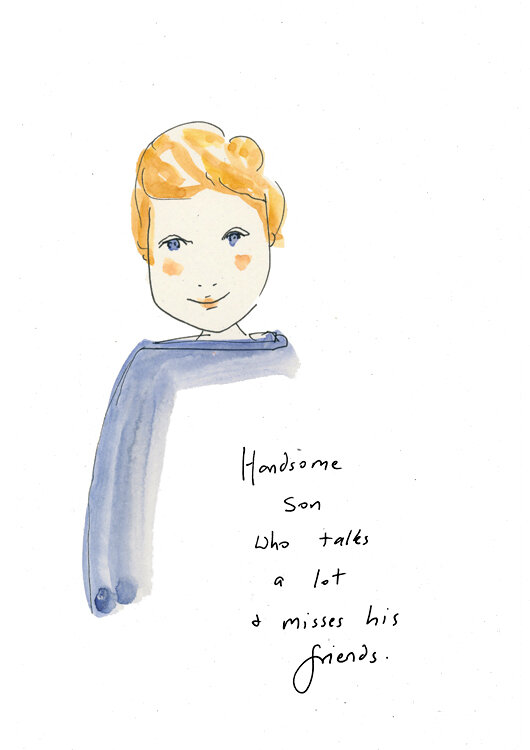 Handsome
son
who talks
a lot
& misses his
friends.